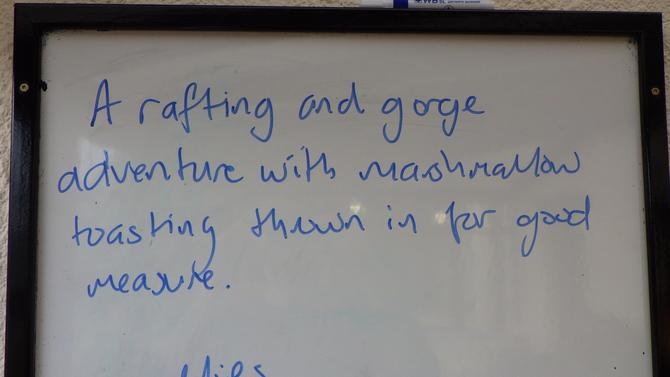 A rafting and gorge
adventure with marshmallow
toasting thrown in for good
measure.